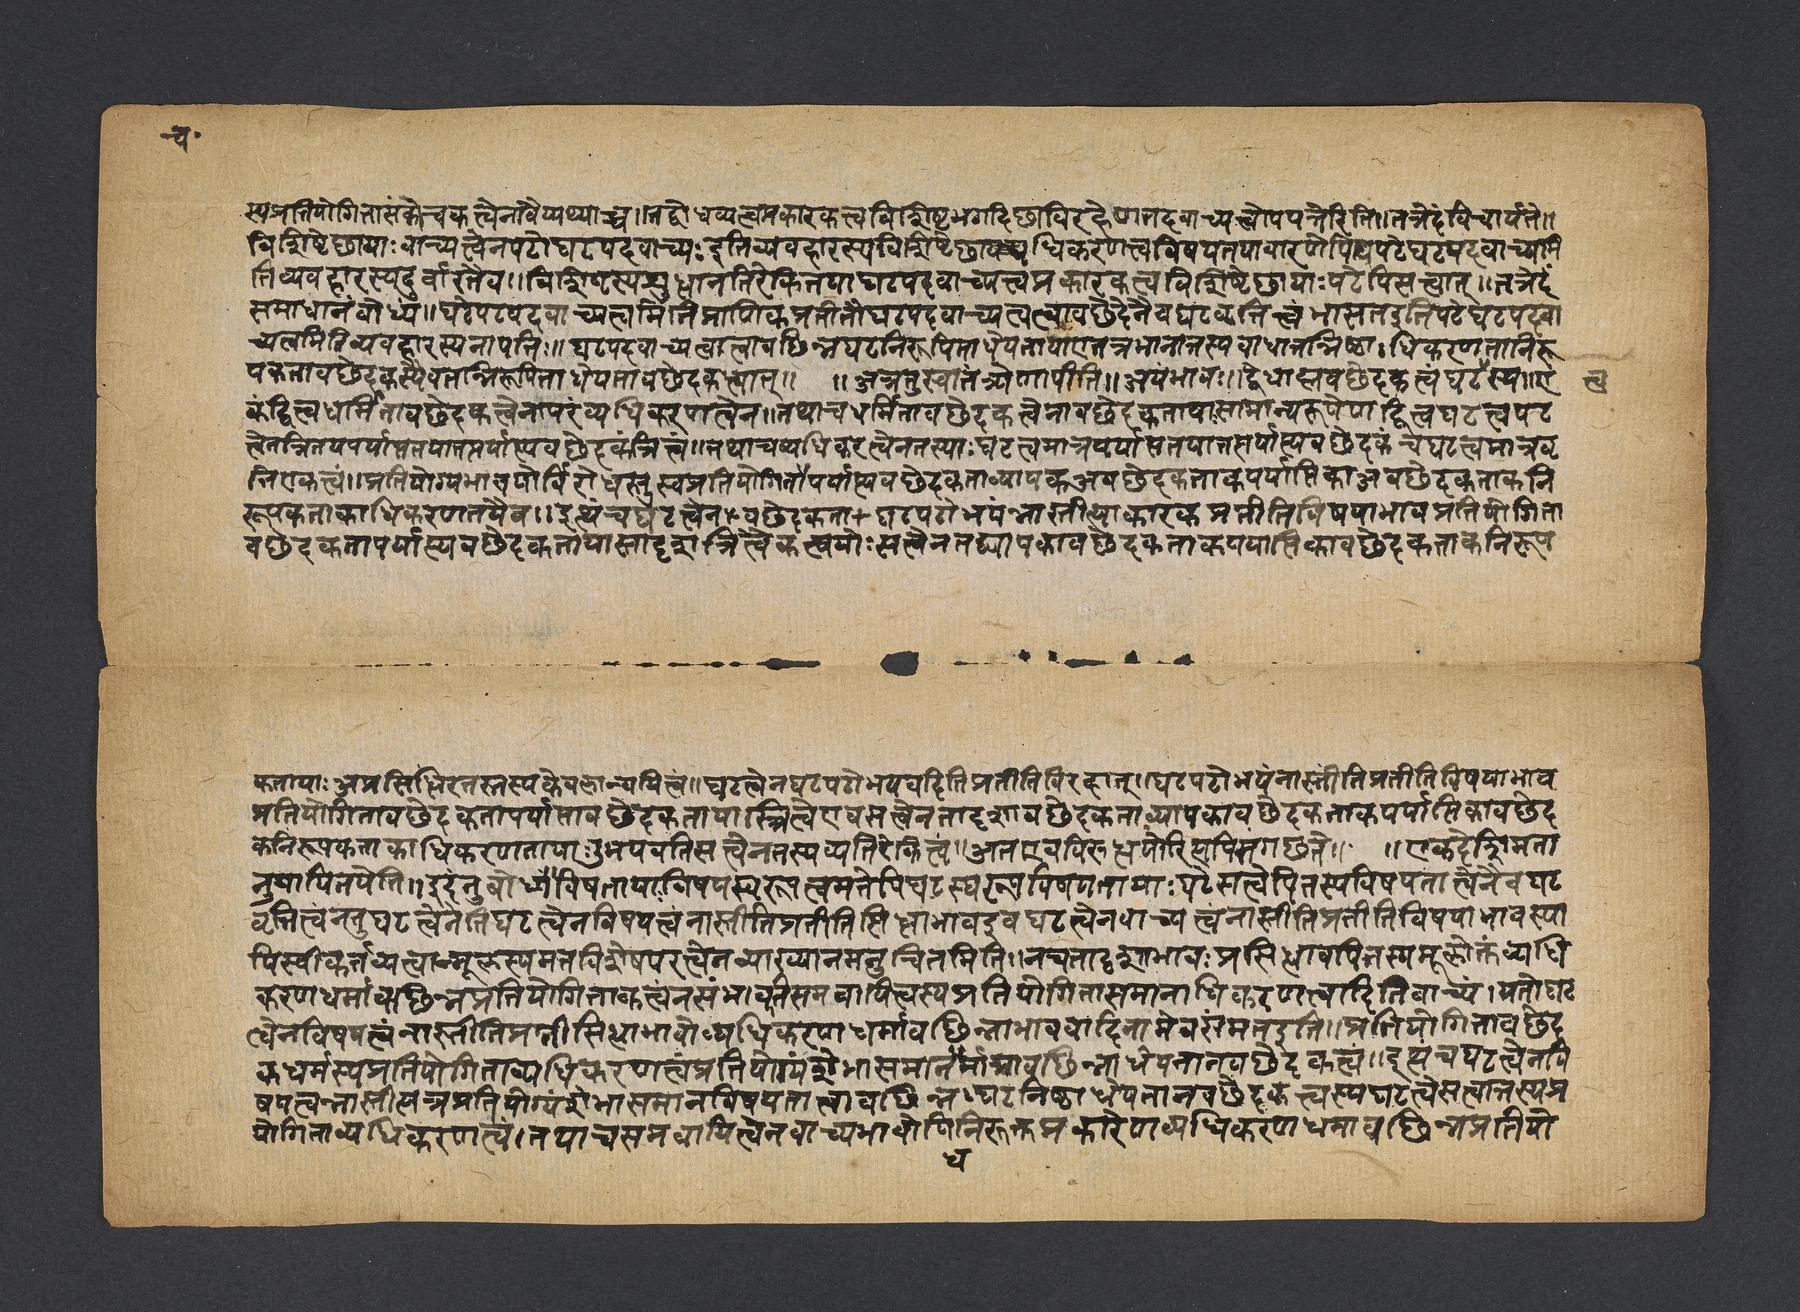 च॰
स्यप्रतियोगितासंकोचकत्वेनावैयथ्याच्च॥तद्बोधव्यत्वप्रकारकत्वविशिष्टभगवदिछाविरहेणतद्वाच्यत्वोपपत्तेरिति॥तत्रेदंविचार्यते॥
विशिष्टेछायाःवाच्यत्वेनपटोघटपदवाच्यःइतिव्यवहारस्यविशिष्टेछाधिकरणत्वविषयतयावारणेपिपटेघटपदवाच्यमि
तिव्यवहारस्यदुर्वारतैव॥विशिष्टस्यशुद्धानतिरेकितयाघटपदवाच्यत्वप्रकारकत्वविशिष्टेछायाःपटेपिसत्वात्॥तत्रेदं
समाधानंबोध्यं॥घटेपटपदवाच्यत्वमितिप्रतीतौघटपदवाच्यत्वत्वावछेदेनैवघटवृत्तित्वंभासतइतिपटेघटपदवा
च्यत्वमितिव्यवहारस्यनापत्तिः॥घटपदवाच्यत्वत्वावछिन्नघटनिरूपिताधेयताया एतत्रभानात्तस्यबाधात्तन्निष्ठाधिकरणतानिरू
पकतावछेदकस्यैवतन्निरूपिताधेयतावछेदकत्वात्॥ ॥अत्रतुस्वातंत्र्येणापीति॥अयंभावः॥द्विधाह्यवछेदकत्वंघटस्य॥ए त्व
कंद्वित्वधर्मितावछेदकत्वेनापरंव्यधिकरणत्वेन॥तथाचधर्मितावछेदकत्वेनावछेदकतायासामान्यरूपेणद्वित्वघटत्वपट
त्वैतन्त्रितयपर्याप्ततयातत्पर्याप्त्यवछेदकंत्रित्वं॥तथाचव्यधिकरत्वेनतस्याःघटत्वमात्रपर्याप्ततयातत्पर्याप्त्यवछेदकंचघटत्वमात्रवृ
त्तिएकत्वं॥प्रतियोग्यभावयोर्विरोधस्तुस्वप्रतियोगितापर्याप्त्यवछेदकताव्यापकअवछेदकताकपर्याप्तिकाअवछेदकताकनि
रूपकताकाधिकरणतयैव॥इत्थंचघटत्वेनघटपटोभयंनास्तीत्याकारकप्रतीतिविषयाभावप्रतियोगिता
वछेदकतापर्याप्त्यवछेदकतायास्तादृशत्रित्वैकत्वयोःसत्वेनतद्व्यापकावछेदकताकपर्याप्तिकावछेदकताकनिरूप
कतायाःअप्रसिद्धिरतस्तस्यकेवलान्वयित्वं॥घटत्वेनघटपटोभयवदितिप्रतीतिविरहात्।घटपटोभयंनास्तीतिप्रतीतिविषयाभाव
प्रतियोगितावछेदकतापर्याप्तावछेदकतायास्त्रित्वेएवसत्वेनतादृशावछेदकताव्यापकावछेदकताकपर्याप्तिकावछेद
कनिरूपकताकाधिकरणतायाउभयवतिसत्वेनतस्यव्यतिरेकित्वं॥अतएवविरुद्धयोरित्यपिसंगछते॥ ॥एकदेशिमता
नुयायितयेति॥इदंतुबोध्यंविषतायाविषयस्वरूपत्वमतेपिघटस्वरूपविषयतायाःघटेसत्वेपितस्यविषयतात्वेनैवघट
वृत्तित्वंनतुघटत्वेनेतिघटत्वेनविषयत्वंनास्तीतिप्रतीतिसिद्धाभावइवघटत्वेनवाच्यत्वंनास्तीतिप्रतीतिविषयाभावस्या
पिस्वीकर्तव्यत्वान्मूलस्यमतविशेषपरत्वेनव्याख्यानमनुचितमिति॥नचतादृशाभावःप्रसिद्धावपितस्यमूलोक्तव्यधि
करणधर्मावछिन्नप्रतियोगिताकत्वंनसंभवतिसमवायित्वस्यप्रतियोगितासमानाधिकरणत्वादितिवाच्यं।यतोघट
त्वेनविषयत्वंनास्तीतिप्रतीसिद्धाभावोव्यधिकरणधर्मावछिन्नाभाववादिनामेवसंमतइति॥प्रतियोगितावछेद
कधर्मस्यप्रतियोगिताव्यधिकरणत्वंप्रतियोग्यंशेभासमानधर्मावछिन्नाधेयतानवछेदकत्वं॥इत्थंचघटत्वेनवि
षयत्वंनास्तीत्यत्रप्रतियोग्यंशेभासमानविषयतात्वावछिन्नघटनिष्ठाधेयतानवछेदकत्वस्यघटत्वेसत्वात्तस्यप्र
योगिताव्यधिकरणत्वं।तथाचसमवायित्वेनवाच्यभावोपिनिरुक्तप्रकारेणव्यधिकरणधमावछिन्नप्रतियो
ख